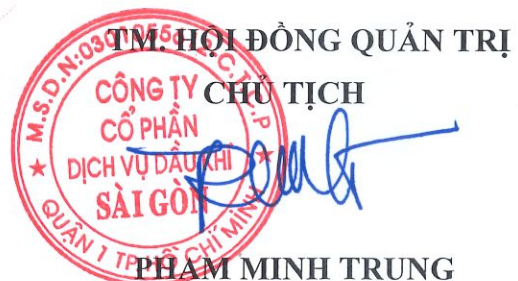 TM. HỘI ĐỒNG QUẢN TRỊ
CHỦ TỊCH
CÔNG TY
CỔ PHẦN
DỊCH VỤ DẦU KHÍ
SÀI GÒN
QUẬN 1 TP HỒ CHÍ MINH
PHẠM MINH TRUNG